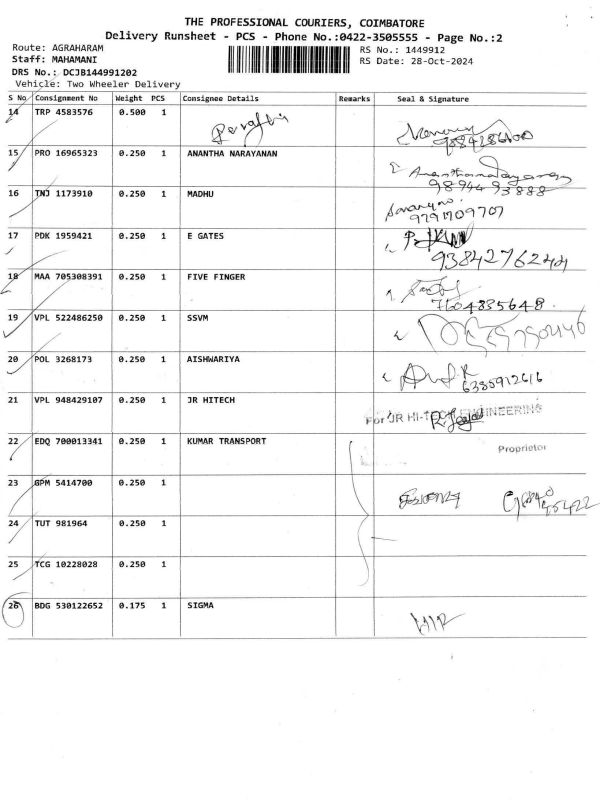 THE PROFESSIONAL COURIERS, COIMBATORE
Delivery Runsheet - PCS - Phone No.:0422-3505555 - Page No.:2
Route: AGRAHARAM RS No.: 1449912
Staff: MAHAMANI RS Date: 28-Oct-2024
DRS No.: DCJB144991202
Vehicle: Two Wheeler Delivery
S No Consignment No Weight PCS Consignee Details Remarks Seal & Signature
14 TRP 4583576 0.500 1
15 PRO 16965323 0.250 1 ANANTHA NARAYANAN
9894493888
16 TNJ 1173910 0.250 1 MADHU
9791709707
17 PDK 1959421 0.250 1 E GATES
9384276244
18 MAA 705308391 0.250 1 FIVE FINGER
7604835648
19 VPL 522486250 0.250 1 SSVM
20 POL 3268173 0.250 1 AISHWARIYA
6385912616
21 VPL 948429107 0.250 1 JR HITECH
For JR HI-TECH ENGINEERING
22 EDQ 700013341 0.250 1 KUMAR TRANSPORT
Proprietor
23 GPM 5414700 0.250 1
24 TUT 981964 0.250 1
25 TCG 10228028 0.250 1
26 BDG 530122652 0.175 1 SIGMA